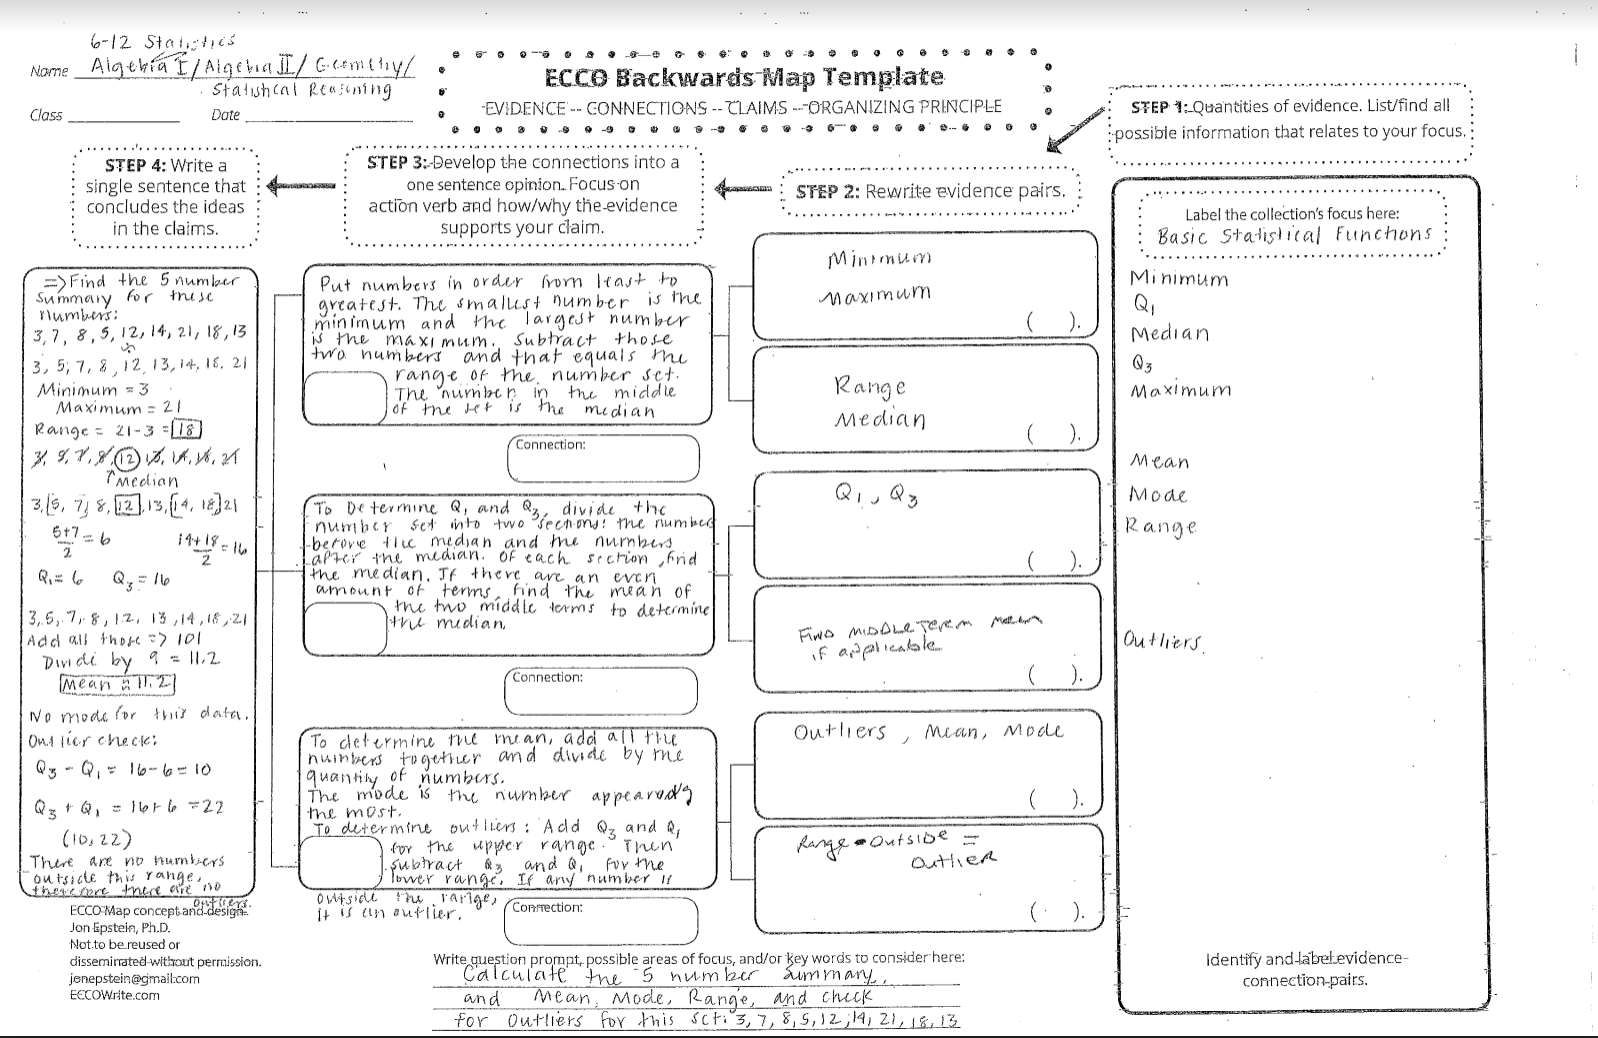 6-12 Statistics
Name Algebra I/Algebra II/Geometry/
Statistical Reasoning
Class Date
ECCO Backwards Map Template
EVIDENCE -- CONNECTIONS -- CLAIMS -- ORGANIZING PRINCIPLE
STEP 1: Quantities of evidence. List/find all
possible information that relates to your focus.
STEP 4: Write a
single sentence that
concludes the ideas
in the claims.
STEP 3: Develop the connections into a
one sentence opinion. Focus on
action verb and how/why the evidence
supports your claim.
STEP 2: Rewrite evidence pairs.
Label the collection's focus here:
Basic Statistical Functions
Minimum
Q1
Median
Q3
Maximum
Mean
Mode
Range
Outliers.
Identify and label evidence-
connection pairs.
Minimum
Maximum
( ).
Range
Median
( ).
Q1, Q3
( ).
Find middle term mean
if applicable
( ).
Outliers, Mean, Mode
( ).
Range - Outside =
Outlier
( ).
Put numbers in order from least to
greatest. The smallest number is the
minimum and the largest number
is the maximum. Subtract those
two numbers and that equals the
range of the number set.
The number in the middle
of the set is the median
Connection:
To Determine Q1 and Q3, divide the
number set into two sections: the number
before the median and the numbers
after the median. Of each section, find
the median. If there are an even
amount of terms, find the mean of
the two middle terms to determine
the median.
Connection:
To determine the mean, add all the
numbers together and divide by the
quantity of numbers.
The mode is the number appearing
the most.
To determine outliers: Add Q3 and Q1
for the upper range. Then
subtract Q3 and Q1 for the
lower range. If any number is
outside the range,
it is an outlier.
Connection:
=> Find the 5 number
summary for these
numbers:
3, 7, 8, 5, 12, 14, 21, 18, 13
3, 5, 7, 8, 12, 13, 14, 18, 21
Minimum = 3
Maximum = 21
Range = 21-3 = 18
3, 5, 7, 8, 12, 13, 14, 18, 21
↑Median
3,[5, 7] 8, [12], 13, [14, 18] 21
5+7/2 = 6 14+18/2 = 16
Q1 = 6 Q3 = 16
3, 5, 7, 8, 12, 13, 14, 18, 21
Add all those => 101
Divide by 9 = 11.2
Mean ≈ 11.2
No mode for this data.
Outlier check:
Q3 - Q1 = 16-6 = 10
Q3 + Q1 = 16+6 = 22
(10, 22)
There are no numbers
outside this range,
therefore there are no
outliers.
ECCO Map concept and design
Jon Epstein, Ph.D.
Not to be reused or
disseminated without permission.
jenepstein@gmail.com
ECCOWrite.com
Write question prompt, possible areas of focus, and/or key words to consider here:
Calculate the 5 number summary,
and Mean, Mode, Range, and check
for outliers for this set: 3, 7, 8, 5, 12, 14, 21, 18, 13